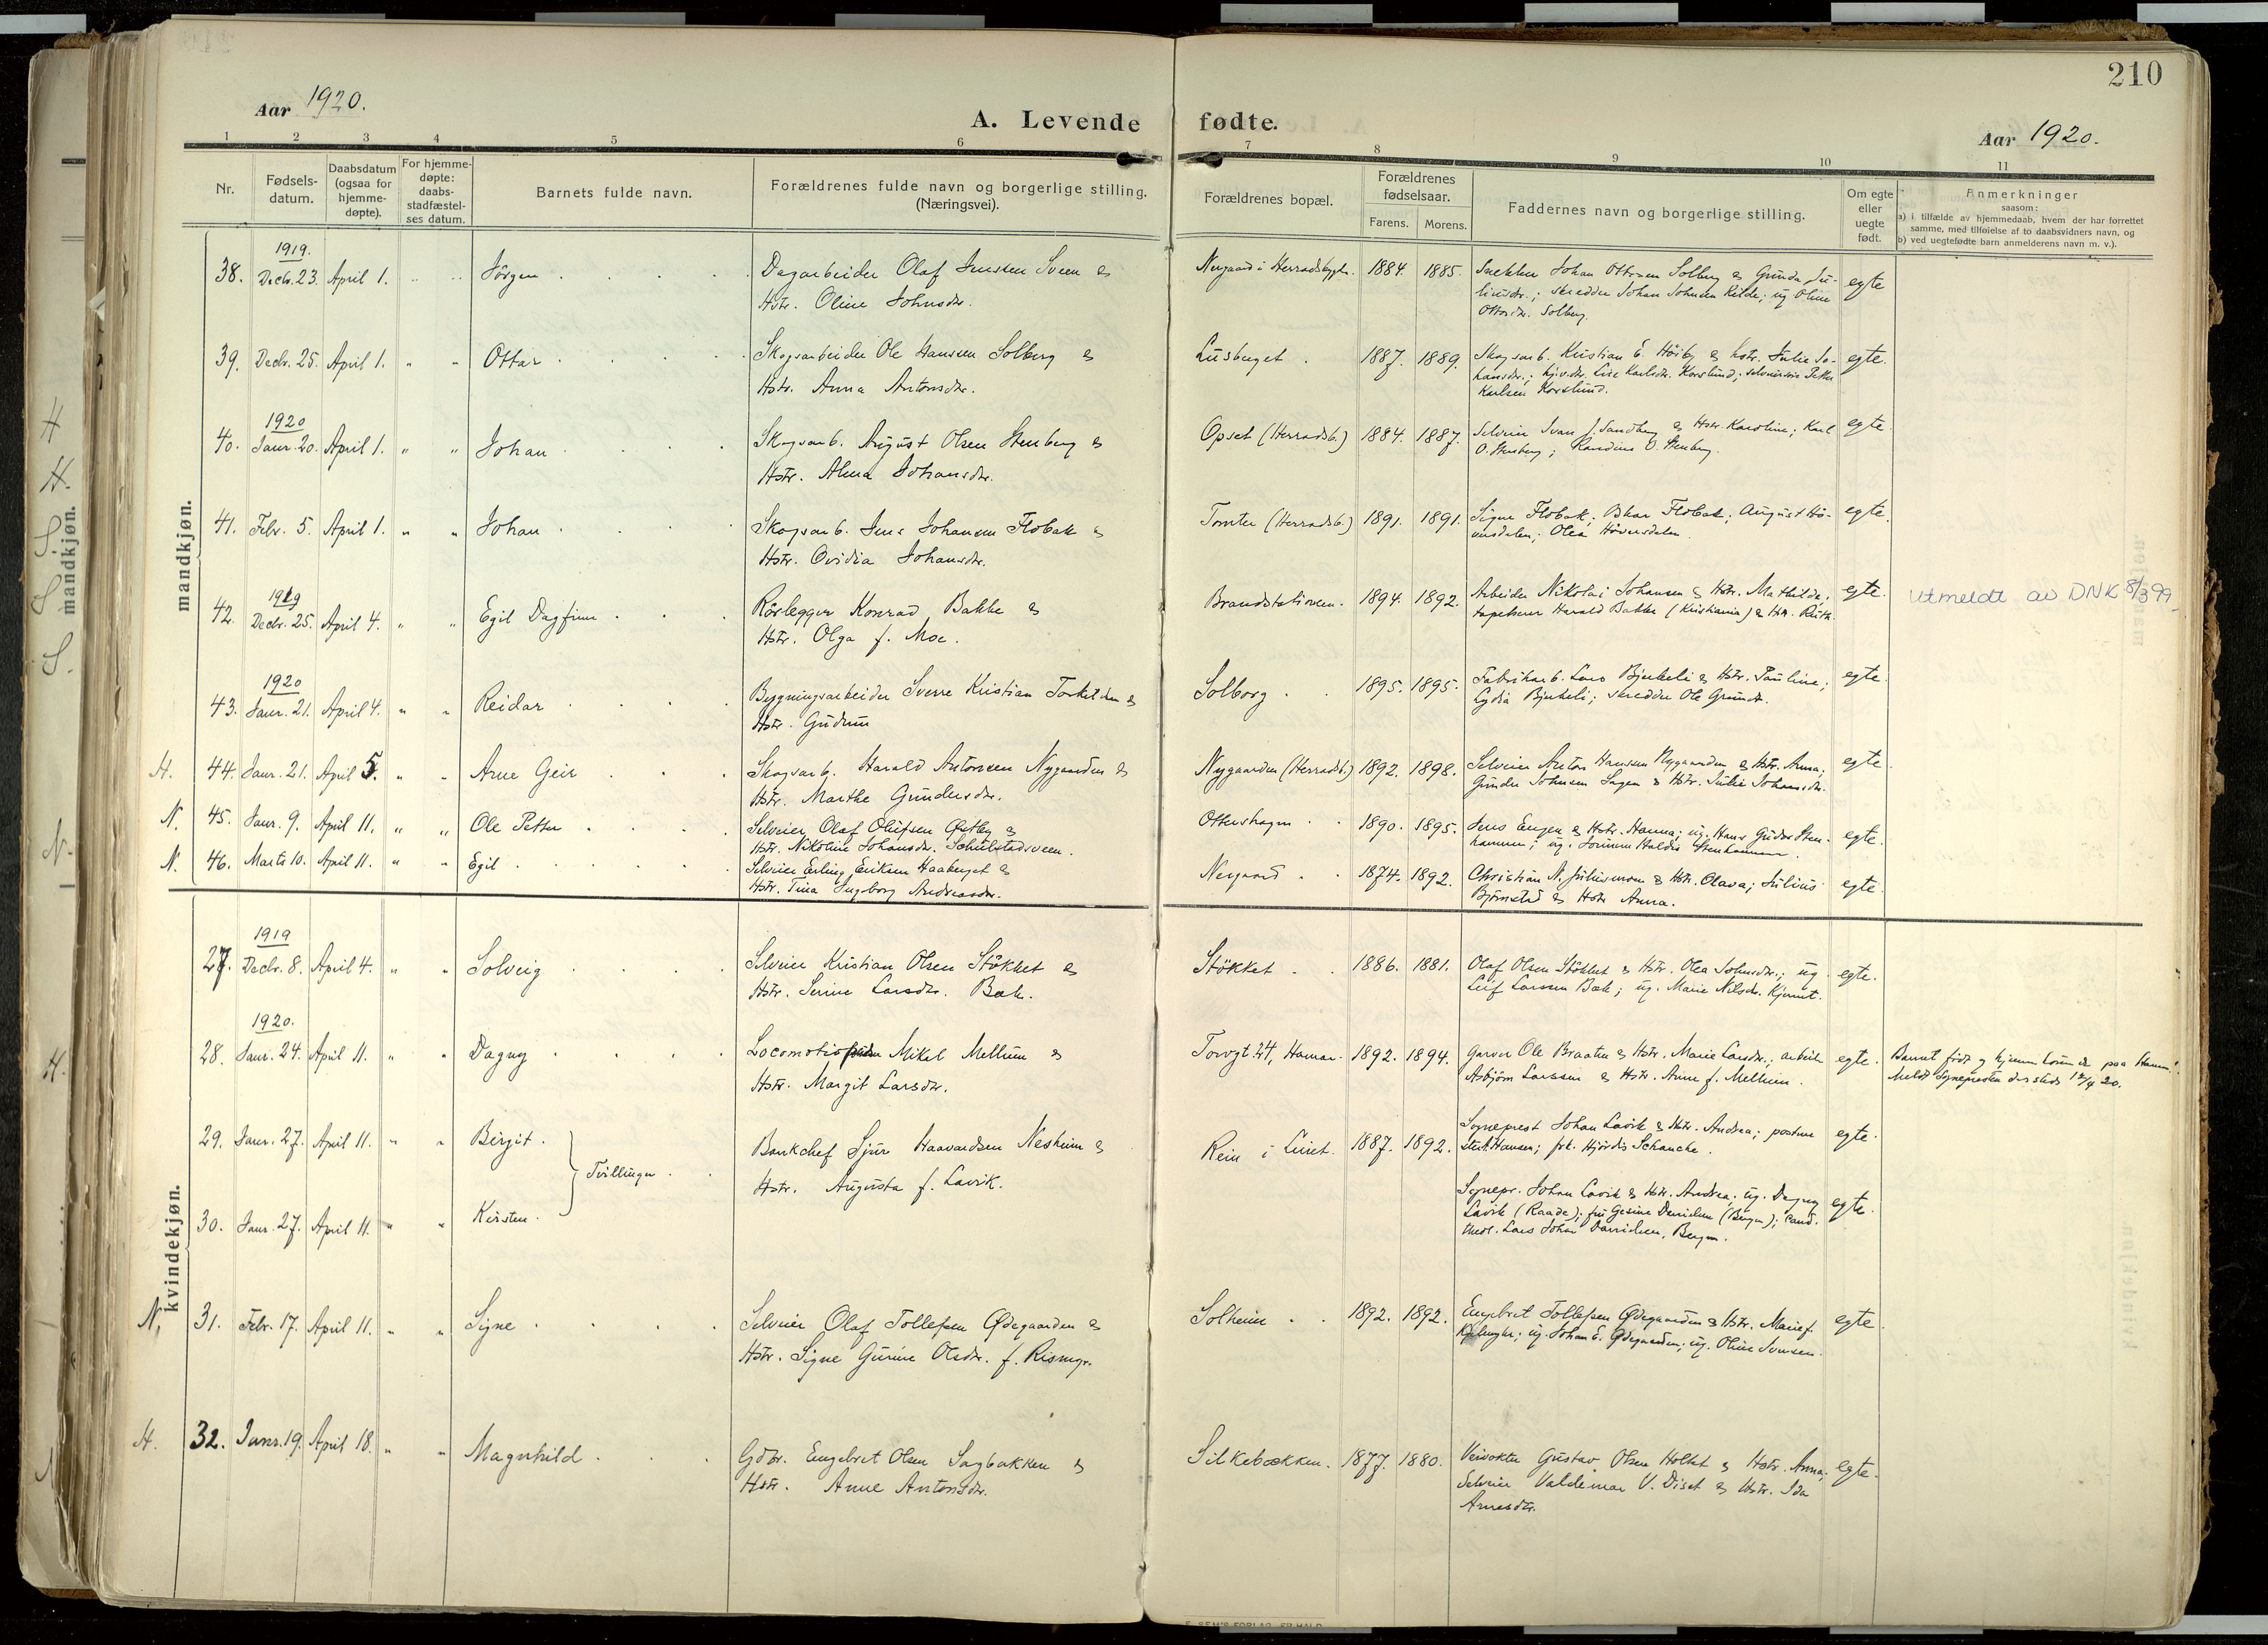 210
Aar 1920.
A. Levende fødte.
Aar 1920.
1 2 3 4 5 6 7 8 9 10 11
Nr.
Fødsels-
datum.
Daabsdatum
(ogsaa for
hjemme-
døpte).
For hjemme-
døpte:
daabs-
stadfæstel-
ses datum.
Barnets fulde navn.
Forældrenes fulde navn og borgerlige stilling.
(Næringsvei).
Forældrenes bopæl.
Forældrenes
fødselsaar.
Farens. Morens.
Faddernes navn og borgerlige stilling.
Om egte
eller
uegte
født.
Anmerkninger
saasom:
a) i tilfælde av hjemmedaab, hvem der har forrettet
samme, med tilføielse af to daabsvidners navn, og
b) ved uegtefødte barn anmelderens navn m. v.).
mandkjøn.
1919.
38. Decbr. 23. April 1. Jörgen
Dagarbeider Olaf Jensen Sveen &
Hstr. Oline Johnsdr.
Nergaard i Herradsbygden. 1884. 1885.
Snekker Johan Ottosen Solberg & Gunda Ju-
linsdr.; skredder Johan Johnsen Kilde; ug. Oline
Ottosdr. Solberg.
egte
39. Decbr. 25. April 1. " " Ottar
Skogsarbeider Ole Hansen Solberg &
Hstr. Anna Antonsdr.
Lusberget. 1887. 1889.
Skogsarb. Kristian E. Höiby & hstr. Julie Jo-
hansdr.; Lise Karlsdr. Korslund; selveiersøn Petter
Karlsen Korslund.
egte.
1920
40. Janr. 20. April 1. " " Johan
Skogsarb. August Olsen Stenberg &
Hstr. Alma Johansdr.
Opset (Herradsb.) 1884. 1887.
Selveier Ivar J. Sandberg & Hstr. Karoline; Karl
O. Stenberg; Randine O. Stenberg.
egte.
41. Febr. 5. April 1. " " Johan
Skogsarb. Jens Johansen Flobak &
Hstr. Ovidia Johansdr.
Tomter (Herradsb.) 1891. 1891.
Signe Flobak; Oskar Flobak; August Hö-
versdalen; Olea Höversdalen.
egte.
1919
42. Decbr. 25. April 4. " " Egil Dagfinn
Rörlegger Konrad Bakke &
Hstr. Olga f. Moe.
Brandstationen. 1894. 1892.
Arbeider Nikolai Johansen & Hstr. Mathilde;
tapetserer Harald Bakke (Kristiania) & Hstr. Ruth.
egte.
utmeldt av DNK 8/3 99
1920
43. Janr. 21. April 4. " " Reidar
Bygningsarbeider Sverre Kristian Torkildsen &
Hstr. Gudrun
Solborg. 1895. 1895.
Fabrikarb. Lars Bjerkeli & Hstr. Pauline;
Lydia Bjerkeli; skredder Ole Grundt.
egte.
H. 44. Janr. 21. April 5. " " Arne Geir
Skogsarb. Harald Antonsen Nygaarden &
Hstr. Marthe Gundersdr.
Nygaarden (Herradsb.) 1892. 1898.
Selveier Anton Hansen Nygaarden & Hstr. Anna;
Gunder Johnsen Hagen & Hstr. Julie Johansdr.
egte
N. 45. Janr. 9. April 11. " " Ole Petter
Selveier Olaf Olufsen Østby &
Hstr. Nikoline Johansdr. Schulstadsveen.
Ottershagen. 1890. 1895.
Jens Engen & Hstr. Hanna; ug. Hans Guder Sten-
hammer; ug. Haldis Stenhammer.
egte.
N. 46. Marts 10. April 11. " " Egil
Selveier Erling Eriksen Haaberget &
Hstr. Tina Ingborg Andreasdr.
Nergaard. 1874. 1892.
Christian N. Juliussen & Hstr. Olava; Julius
Björnstad & Hstr. Anna.
egte.
kvindekjøn.
1919
27. Decbr. 8. April 4. " " Solveig
Selveier Kristian Olsen Stökket &
Hstr. Serine Larsdr. Bæk.
Stökket. 1886. 1881.
Olaf Olsen Stökket & Hstr. Olea Johnsdr.; ug.
Leif Larsen Bæk; ug. Marie Nilsdr. Kjernet.
egte.
1920.
28. Janr. 24. April 11. " " Dagny
Locomotivpudser Mikal Mellum &
Hstr. Margit Larsdr.
Torvgt. 24, Hamar. 1892. 1894.
Garver Ole Braaten & Hstr. Marie Larsdr.; arbeider
Asbjörn Larsen & Hstr. Anne f. Mellum.
egte.
Barnet født og hjemmehörende paa Hamar.
Meldt Sognepresten dersteds 14/4 20.
29. Janr. 27. April 11. " " Birgit.
Tvillinger.
Bankchef Sjur Haavardsen Nesheim &
Hstr. Augusta f. Lavik.
Rein i Lunet. 1887. 1892.
Sogneprest Johan Lavik & Hstr. Andrea;
Hansen; frk. Hjördis Schanche.
egte.
30. Janr. 27. April 11. " " Kirsten.
Sognepr. Johan Lavik & Hstr. Andrea; ug. Dagny
Lavik (Raade); fru Gesine Davidsen (Bergen); cand.
theol. Lars Johan Danielsen, Bergen.
egte.
N. 31. Febr. 17. April 11. " " Signe
Selveier Olaf Tollefsen Ødegaarden &
Hstr. Signe Gurine Olsdr. f. Risengr.
Solheim. 1892. 1892.
Engebret Tollefsen Ødegaarden & Hstr. Marie f.
ug. Johan E. Ødegaarden; ug. Oline Svensen.
egte.
H. 32. Janr. 19. April 18. " " Magnhild
Gdbr. Engebret Olsen Sagbakken &
Hstr. Anne Antonsdr.
Silkebækken. 1877. 1880.
Veivokter Gustav Olsen Holtet & Hstr. Anna;
Selveier Valdemar V. Diset & Hstr. Ida
Arnesdtr.
egte.